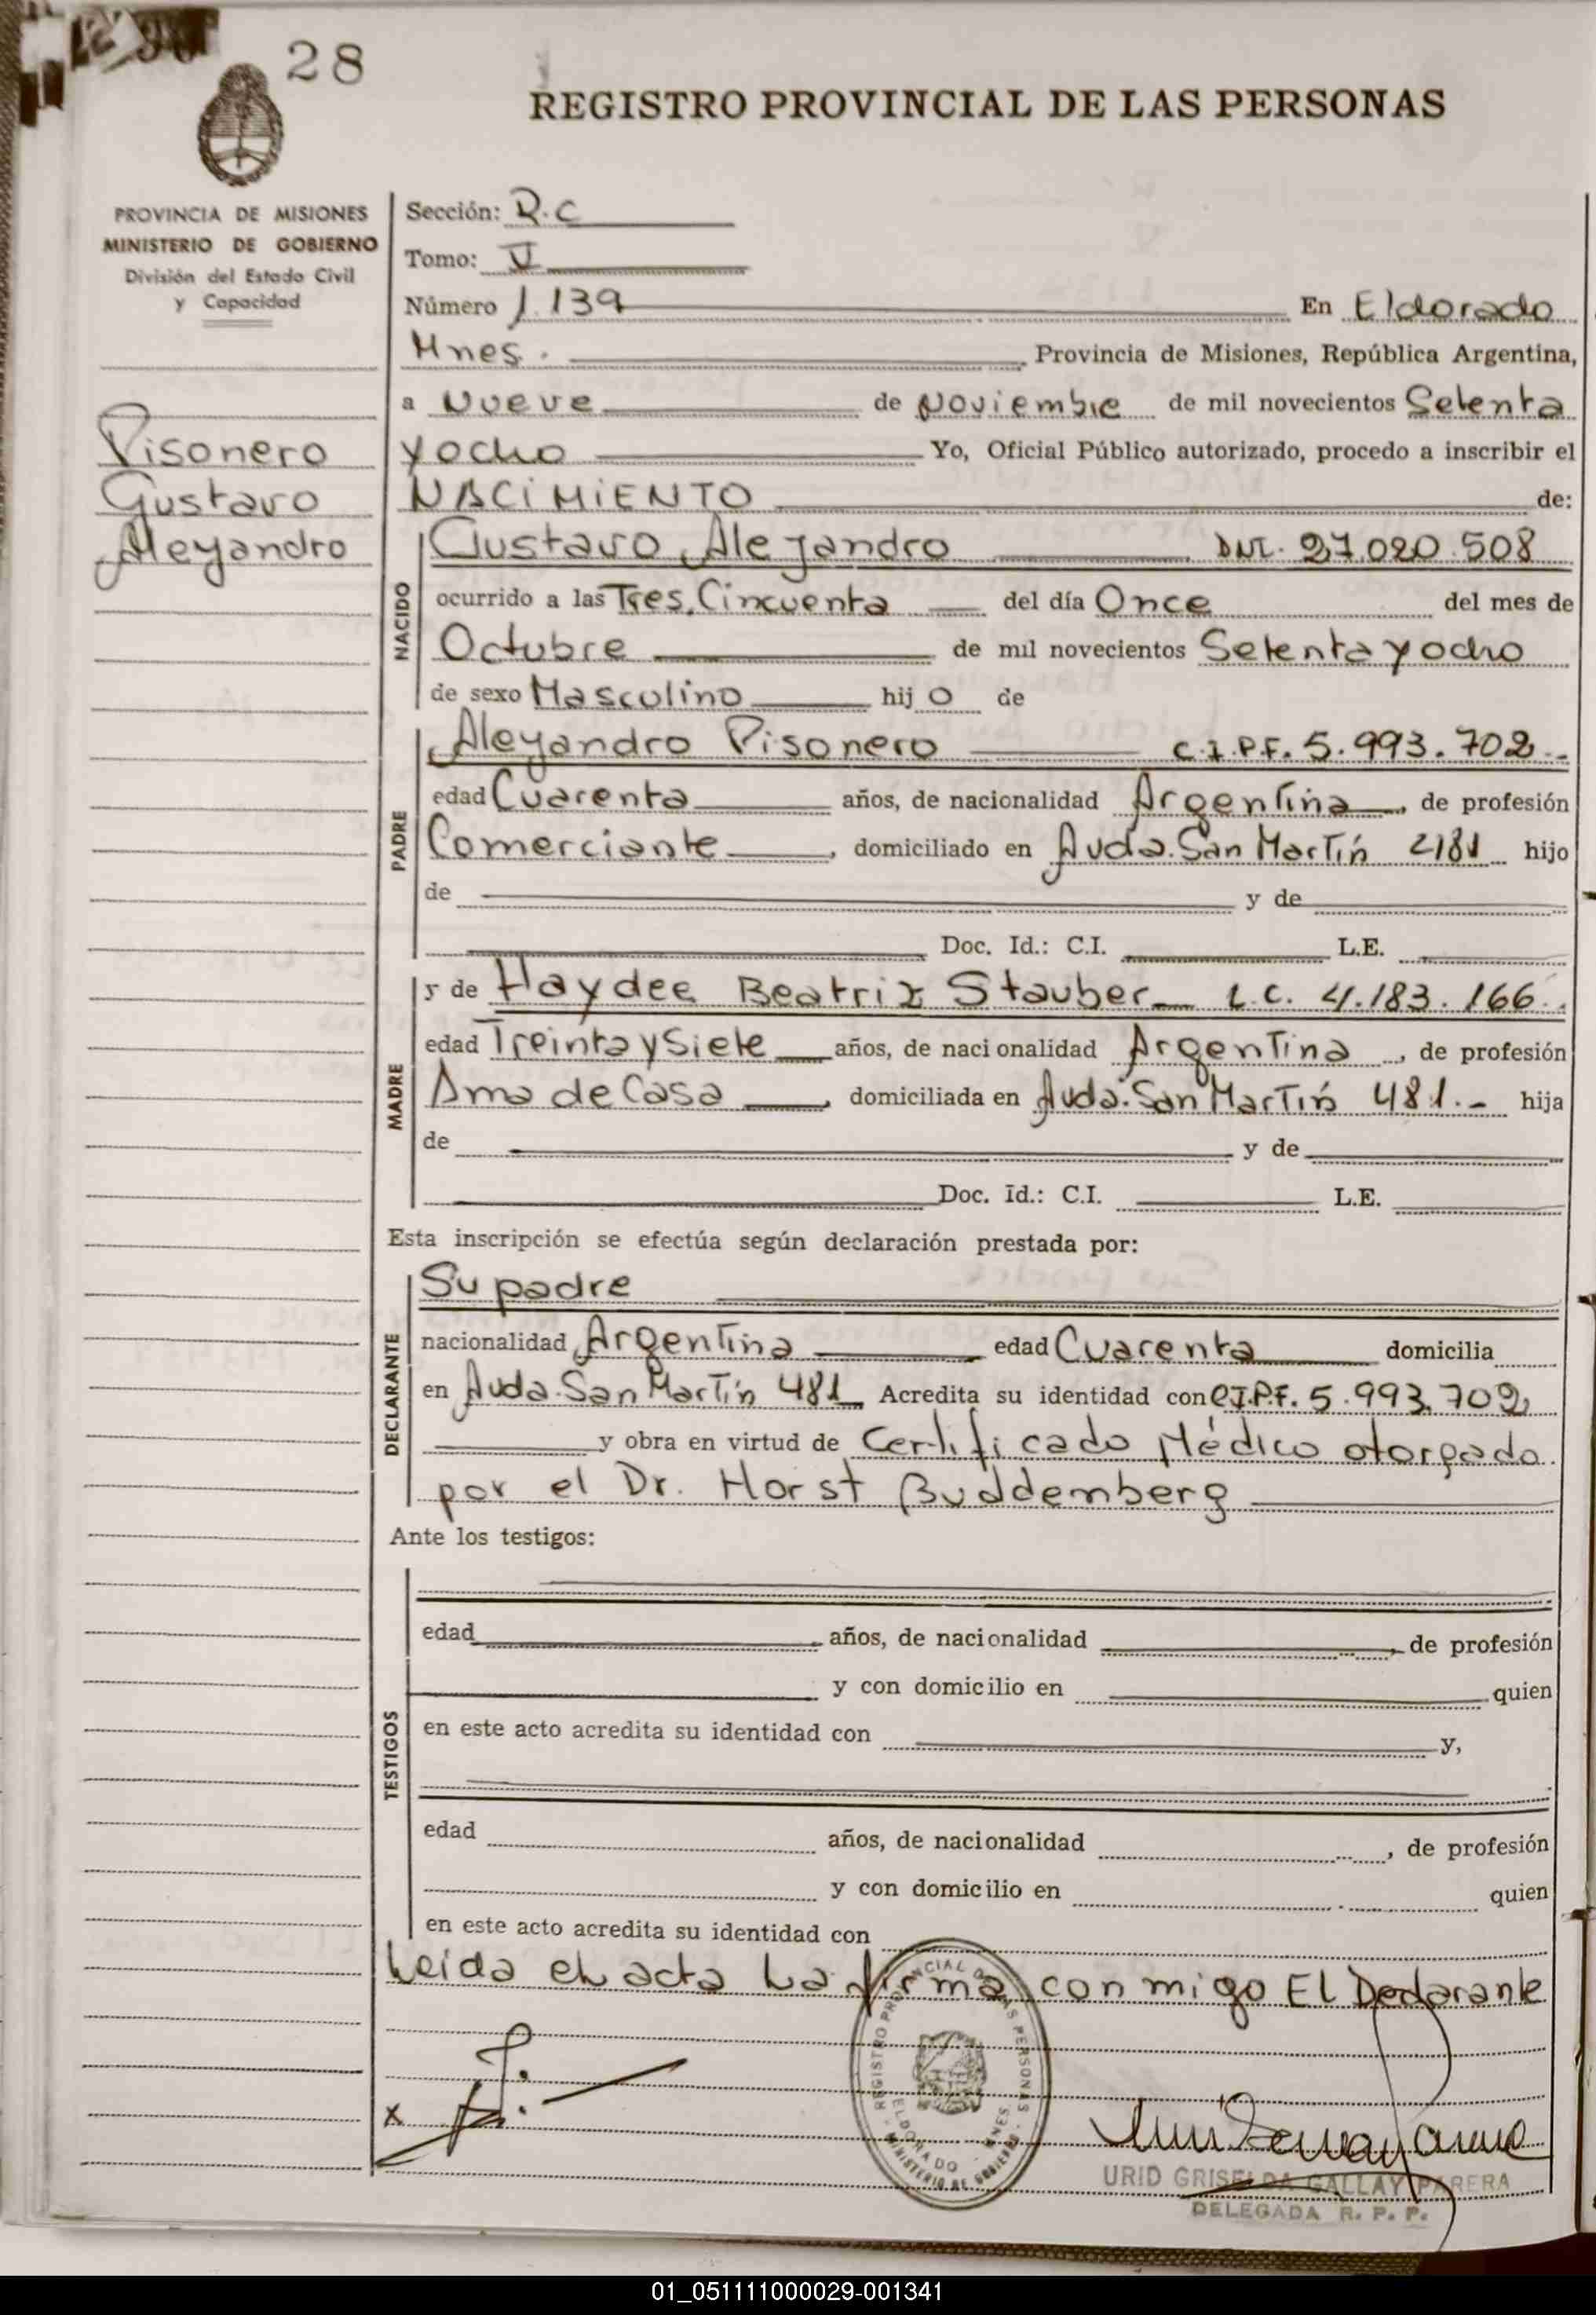 28
REGISTRO PROVINCIAL DE LAS PERSONAS
PROVINCIA DE MISIONES
MINISTERIO DE GOBIERNO
División del Estado Civil
y Capacidad
Pisonero
Gustavo
Aleyandro
Sección: R.C
Tomo: V
Número 1.139 En Eldorado
Mnes. Provincia de Misiones, República Argentina,
a Nueve de Noviembre de mil novecientos Setenta
yocho Yo, Oficial Público autorizado, procedo a inscribir el
NACIMIENTO de:
NACIDO
Gustavo Alejandro DNI. 27.020.508
ocurrido a las Tres, Cincuenta del día Once del mes de
Octubre de mil novecientos Setenta y ocho
de sexo Masculino hij o de
PADRE
Aleyandro Pisonero C.I.P.F. 5.993.702
edad Cuarenta años, de nacionalidad Argentina, de profesión
Comerciante, domiciliado en Avda. San Martín 481 hijo
de y de
Doc. Id.: C.I. L.E.
MADRE
y de Haydee Beatriz Stauber L.C. 4.183.166
edad Treinta y Siete años, de nacionalidad Argentina, de profesión
Ama de Casa, domiciliada en Avda. San Martín 481.- hija
de y de
Doc. Id.: C.I. L.E.
Esta inscripción se efectúa según declaración prestada por:
DECLARANTE
Su padre
nacionalidad Argentina edad Cuarenta domicilia
en Avda. San Martín 481 Acredita su identidad con C.I.P.F. 5.993.702
y obra en virtud de Certificado Médico otorgado
por el Dr. Horst Buddemberg
Ante los testigos:
TESTIGOS
edad años, de nacionalidad , de profesión
y con domicilio en quien
en este acto acredita su identidad con y,
edad años, de nacionalidad , de profesión
y con domicilio en quien
en este acto acredita su identidad con
Leida el acta La firma conmigo El Declarante
REGISTRO PROVINCIAL DE LAS PERSONAS
ELDORADO - MNES.
MINISTERIO DE GOBIERNO
x
URID GRISELDA GALLAY PARERA
DELEGADA R. P. P.
01_051111000029-001341